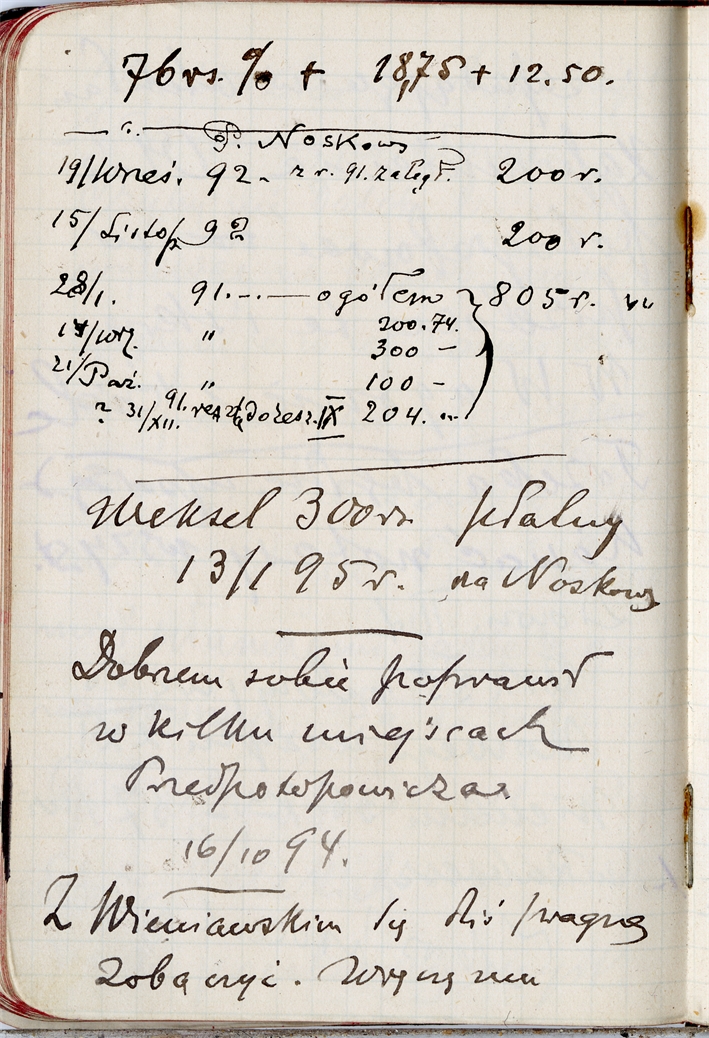 76 rs. % + 18,75 + 12.50.
P. Noskows
19/Wrześ. 92. z r. 91. zaległ. 200 r.
15/Listop 92 200 r.
28/1. 91. — ogółem 805 r.
14/wrz. " 200.74.
300 —
21/Paź. " 100 —
? 31/XII. 91. do IX 204.
Weksel 300 rs. płatny
13/1 95 r. na Noskows
Dobrem sobie poprawił
w kilku miejscach
Przedpotopowicza
16/10 94.
Z Wieniawskim się dziś pragnę
zobaczyć. Wręczę mu